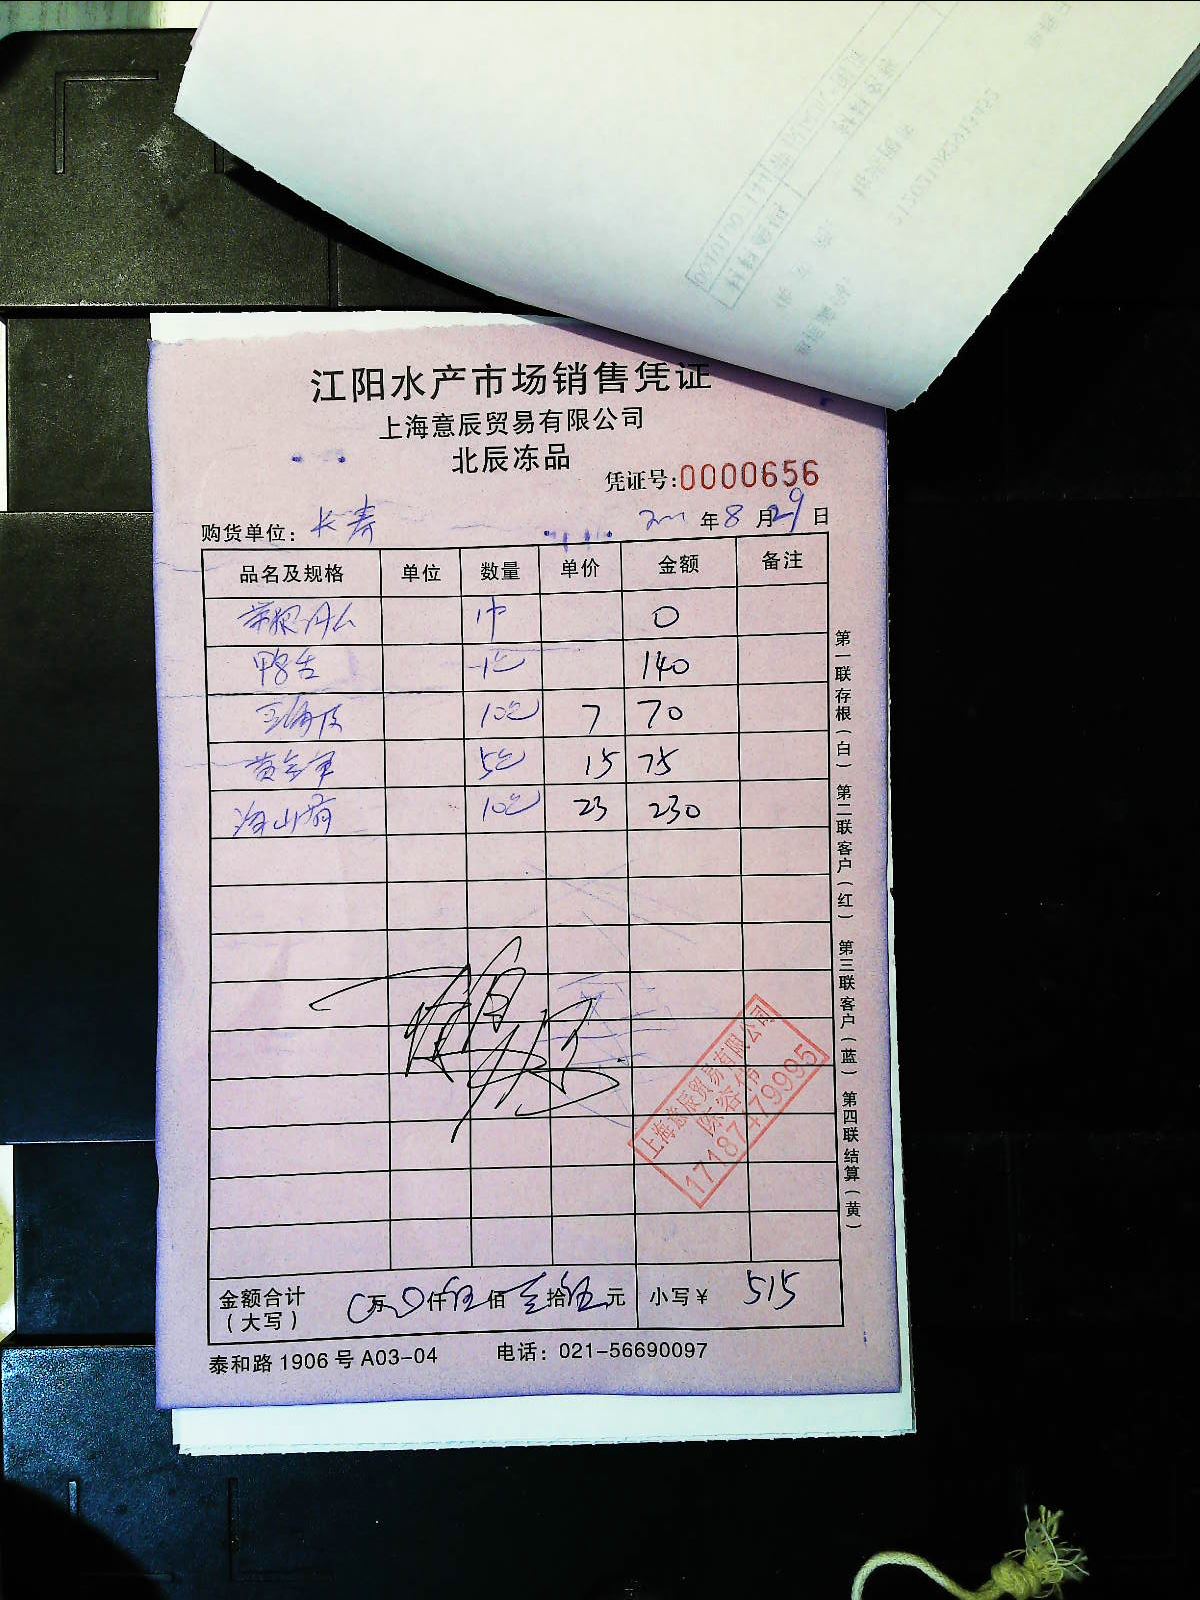 江阳水产市场销售凭证
上海意辰贸易有限公司
北辰冻品
凭证号:0000656
购货单位: 长寿 年 8 月 29 日
品名及规格 单位 数量 单价 金额 备注
0
鸭舌 140
10包 7 70
黄金 5包 15 75
10包 23 230
上海意辰贸易有限公司
17187479995
金额合计(大写) 0万0仟伍佰壹拾伍元 小写¥ 515
泰和路1906号A03-04 电话: 021-56690097
第一联存根(白) 第二联客户(红) 第三联客户(蓝) 第四联结算(黄)